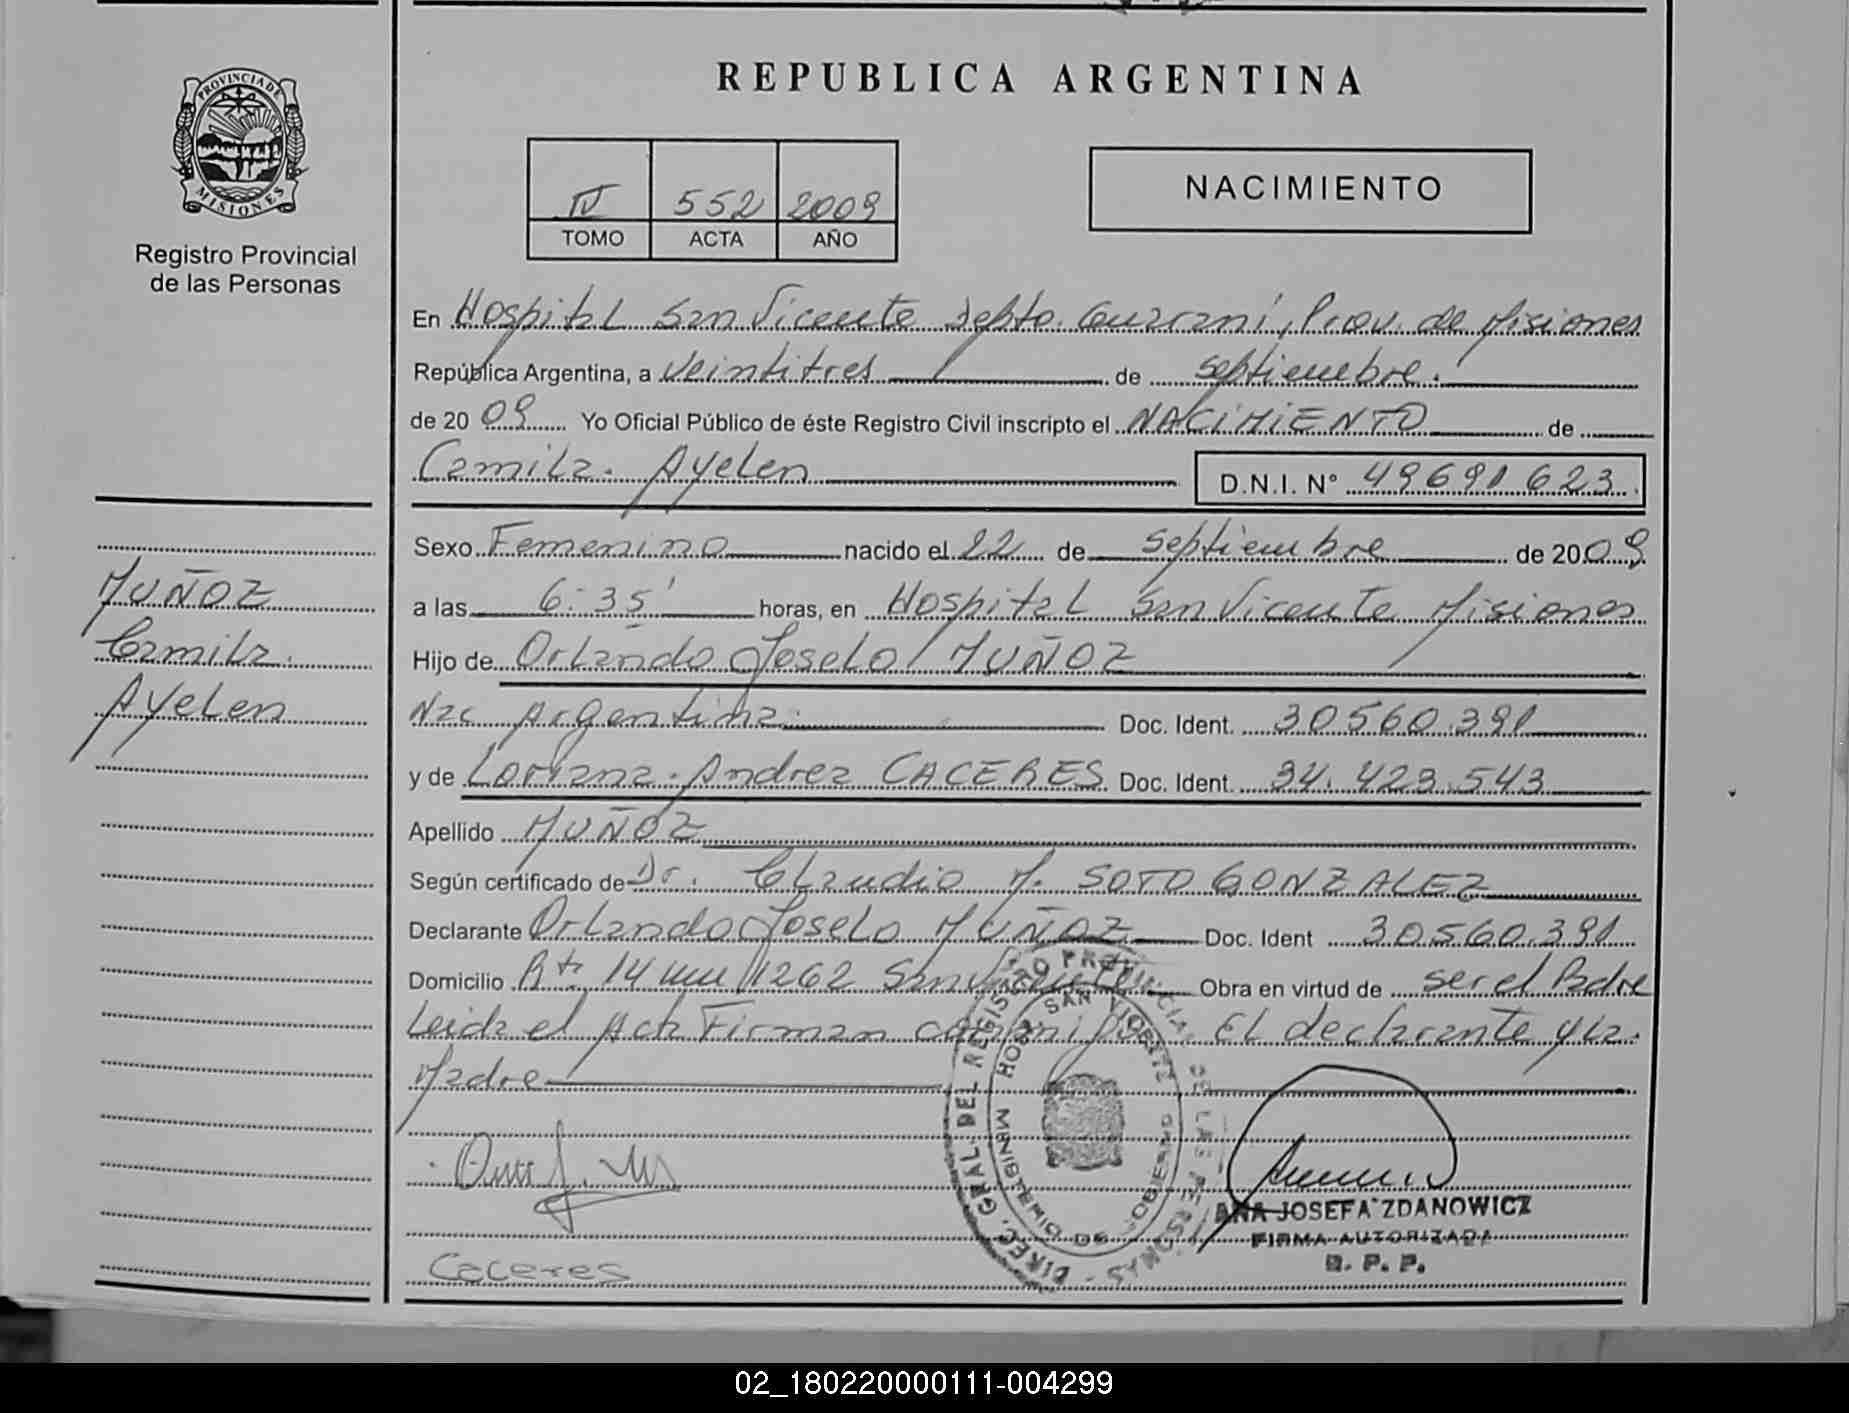 REPUBLICA ARGENTINA
PROVINCIA DE
MISIONES
Registro Provincial
de las Personas
IV 552 2009
TOMO ACTA AÑO
NACIMIENTO
En Hospital San Vicente Depto. Guarani, Prov. de Misiones
República Argentina, a Veintitres de septiembre.
de 20 09 Yo Oficial Público de éste Registro Civil inscripto el NACIMIENTO de
Camila. Ayelen D.N.I. N° 49691623.
MUÑOZ
Camila.
Ayelen
Sexo Femenino nacido el 22 de septiembre de 2009
a las 6:35' horas, en Hospital San Vicente Misiones
Hijo de Orlando Joselo MUÑOZ
Nac Argentina. Doc. Ident. 30560.391
y de Andrea CACERES Doc. Ident. 34.423.543
Apellido MUÑOZ
Según certificado de Dr. Claudio M. SOTO GONZALEZ
Declarante Orlando Joselo MUÑOZ Doc. Ident 30560.391
Domicilio Rta 14 1262 San Vicente Obra en virtud de ser el Padre
Leida el Acta Firman conmigo El declarante y la.
Madre
DIREC. GRAL. DEL REGISTRO PROVINCIAL DE LAS PERSONAS
HOSP. SAN VICENTE
MINISTERIO DE GOBIERNO
ANA JOSEFA ZDANOWICZ
FIRMA AUTORIZADA
R. P. P.
Caceres
02_180220000111-004299